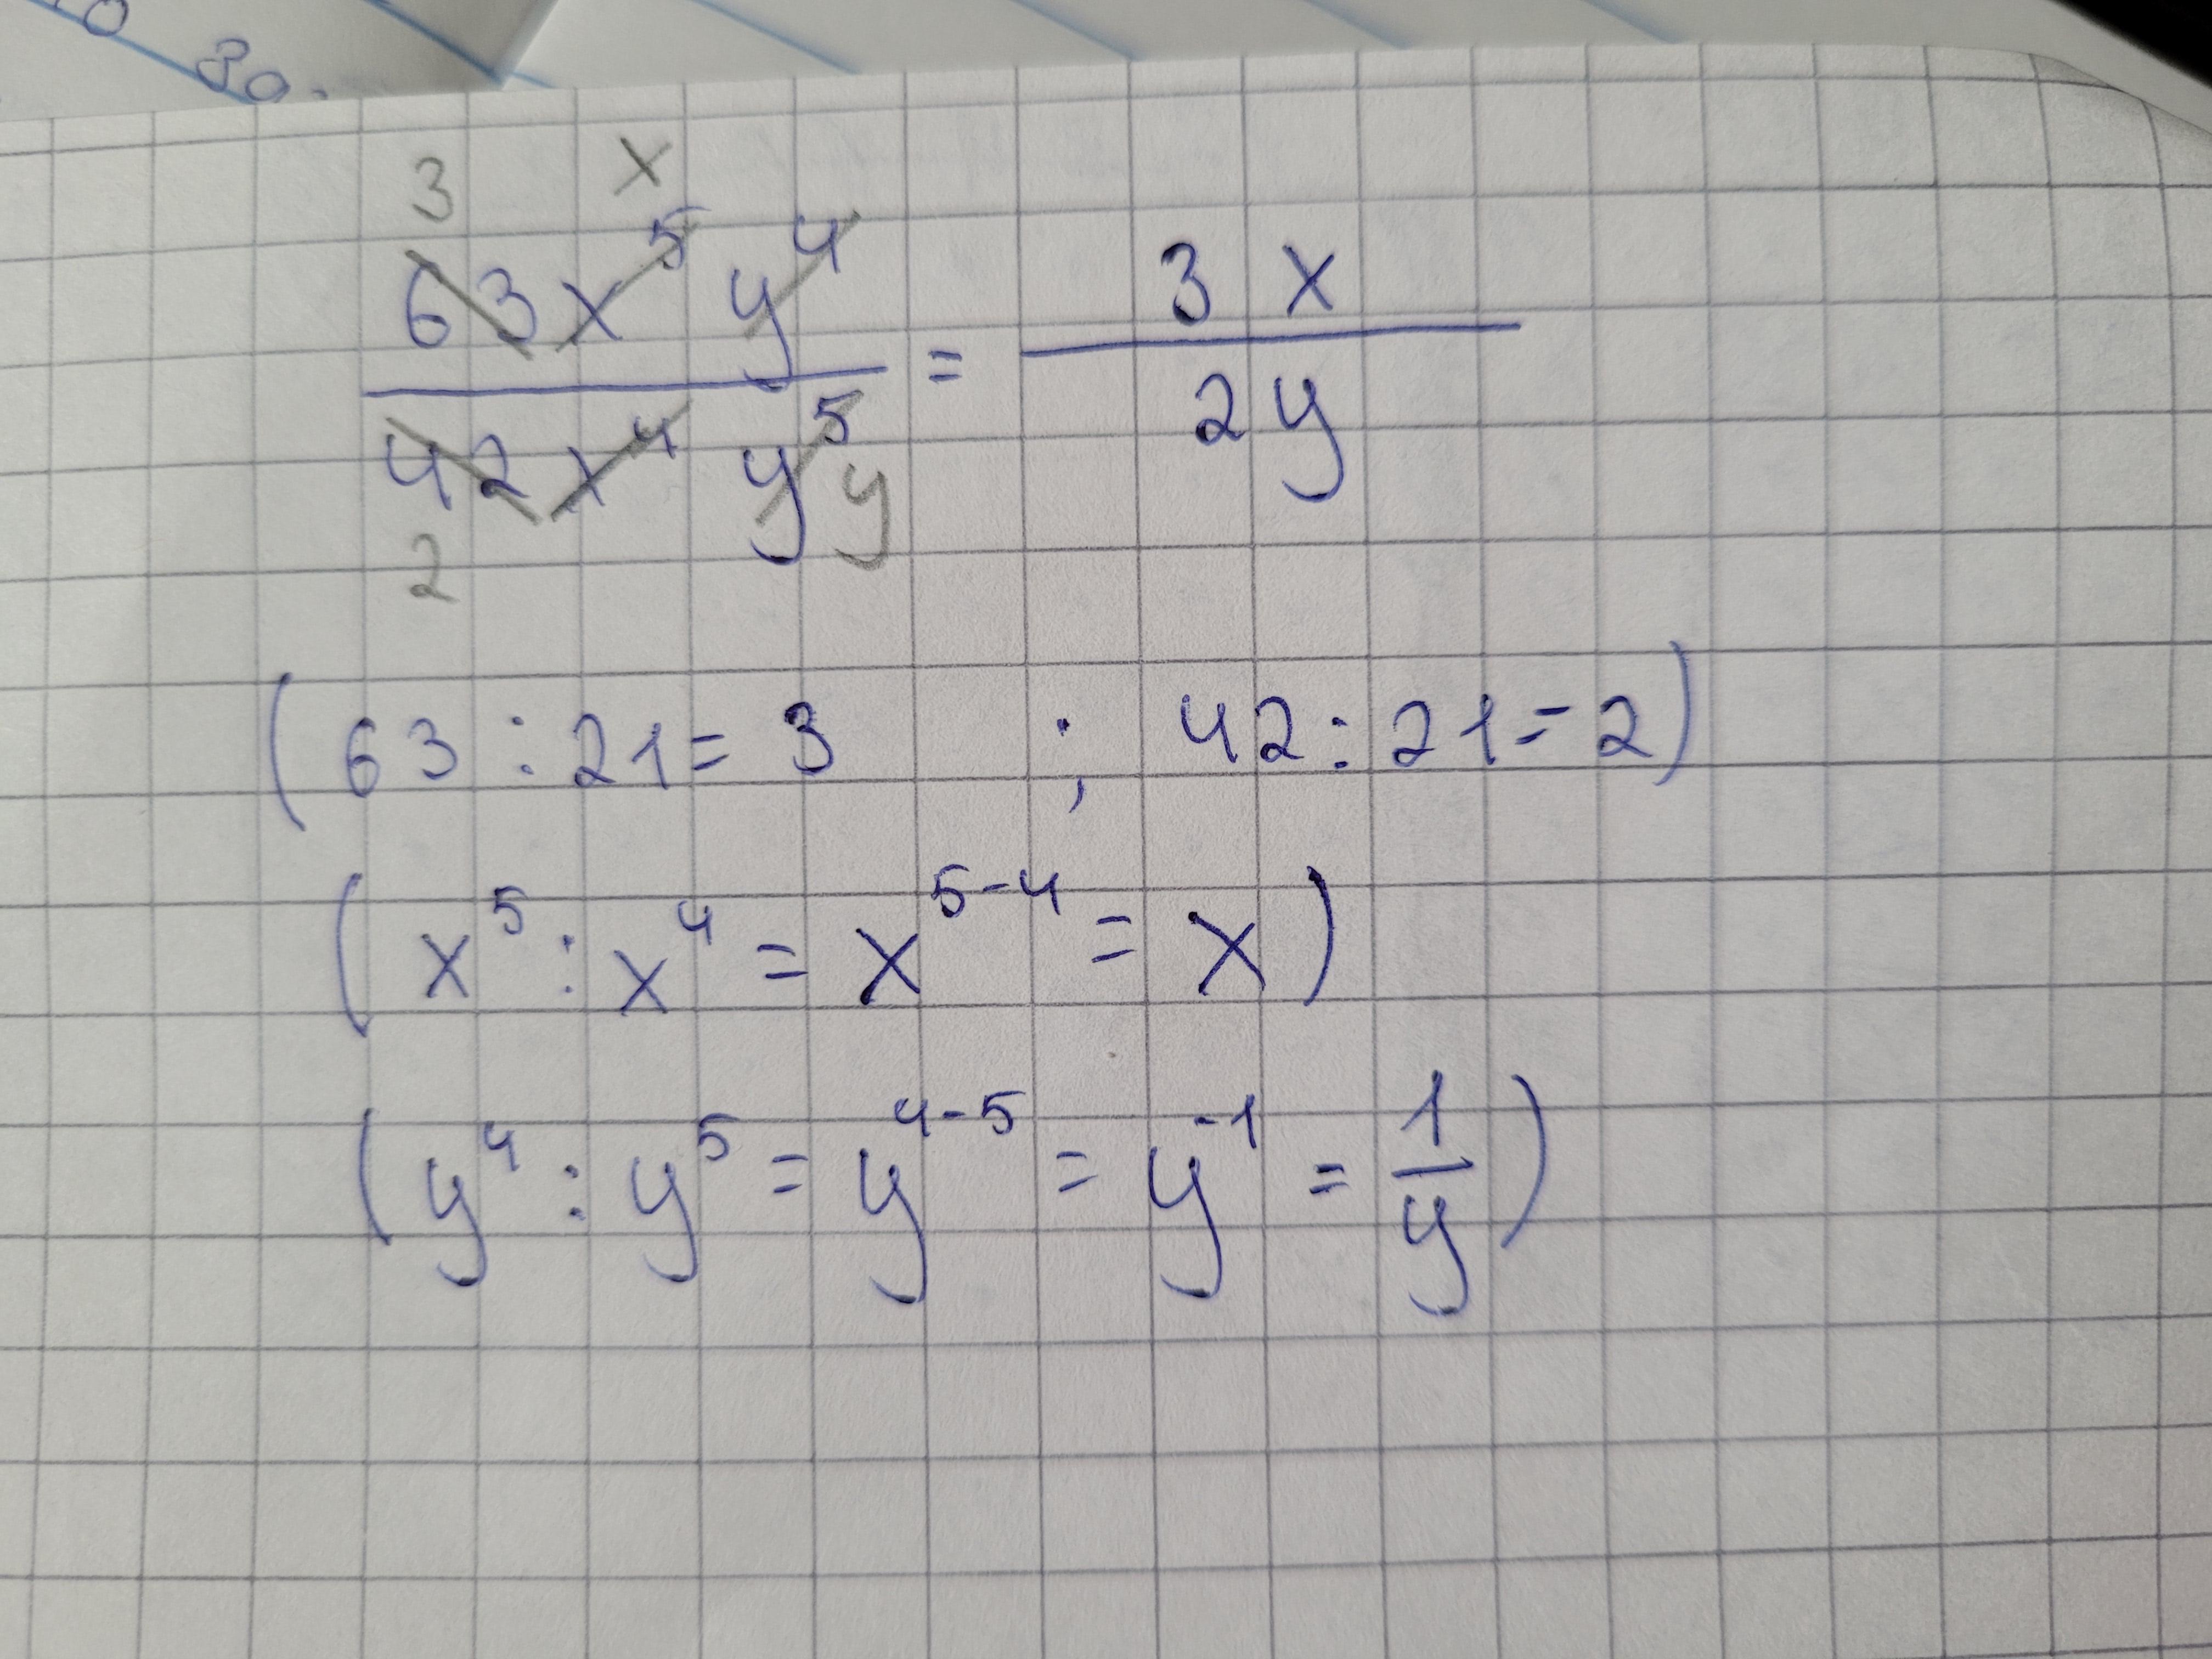 30.
3 x
63x⁵y⁴ / 42x⁴y⁵ = 3x / 2y
y
2
(63 : 21 = 3 ; 42 : 21 = 2)
(x⁵ : x⁴ = x⁵⁻⁴ = x)
(y⁴ : y⁵ = y⁴⁻⁵ = y⁻¹ = 1/y)